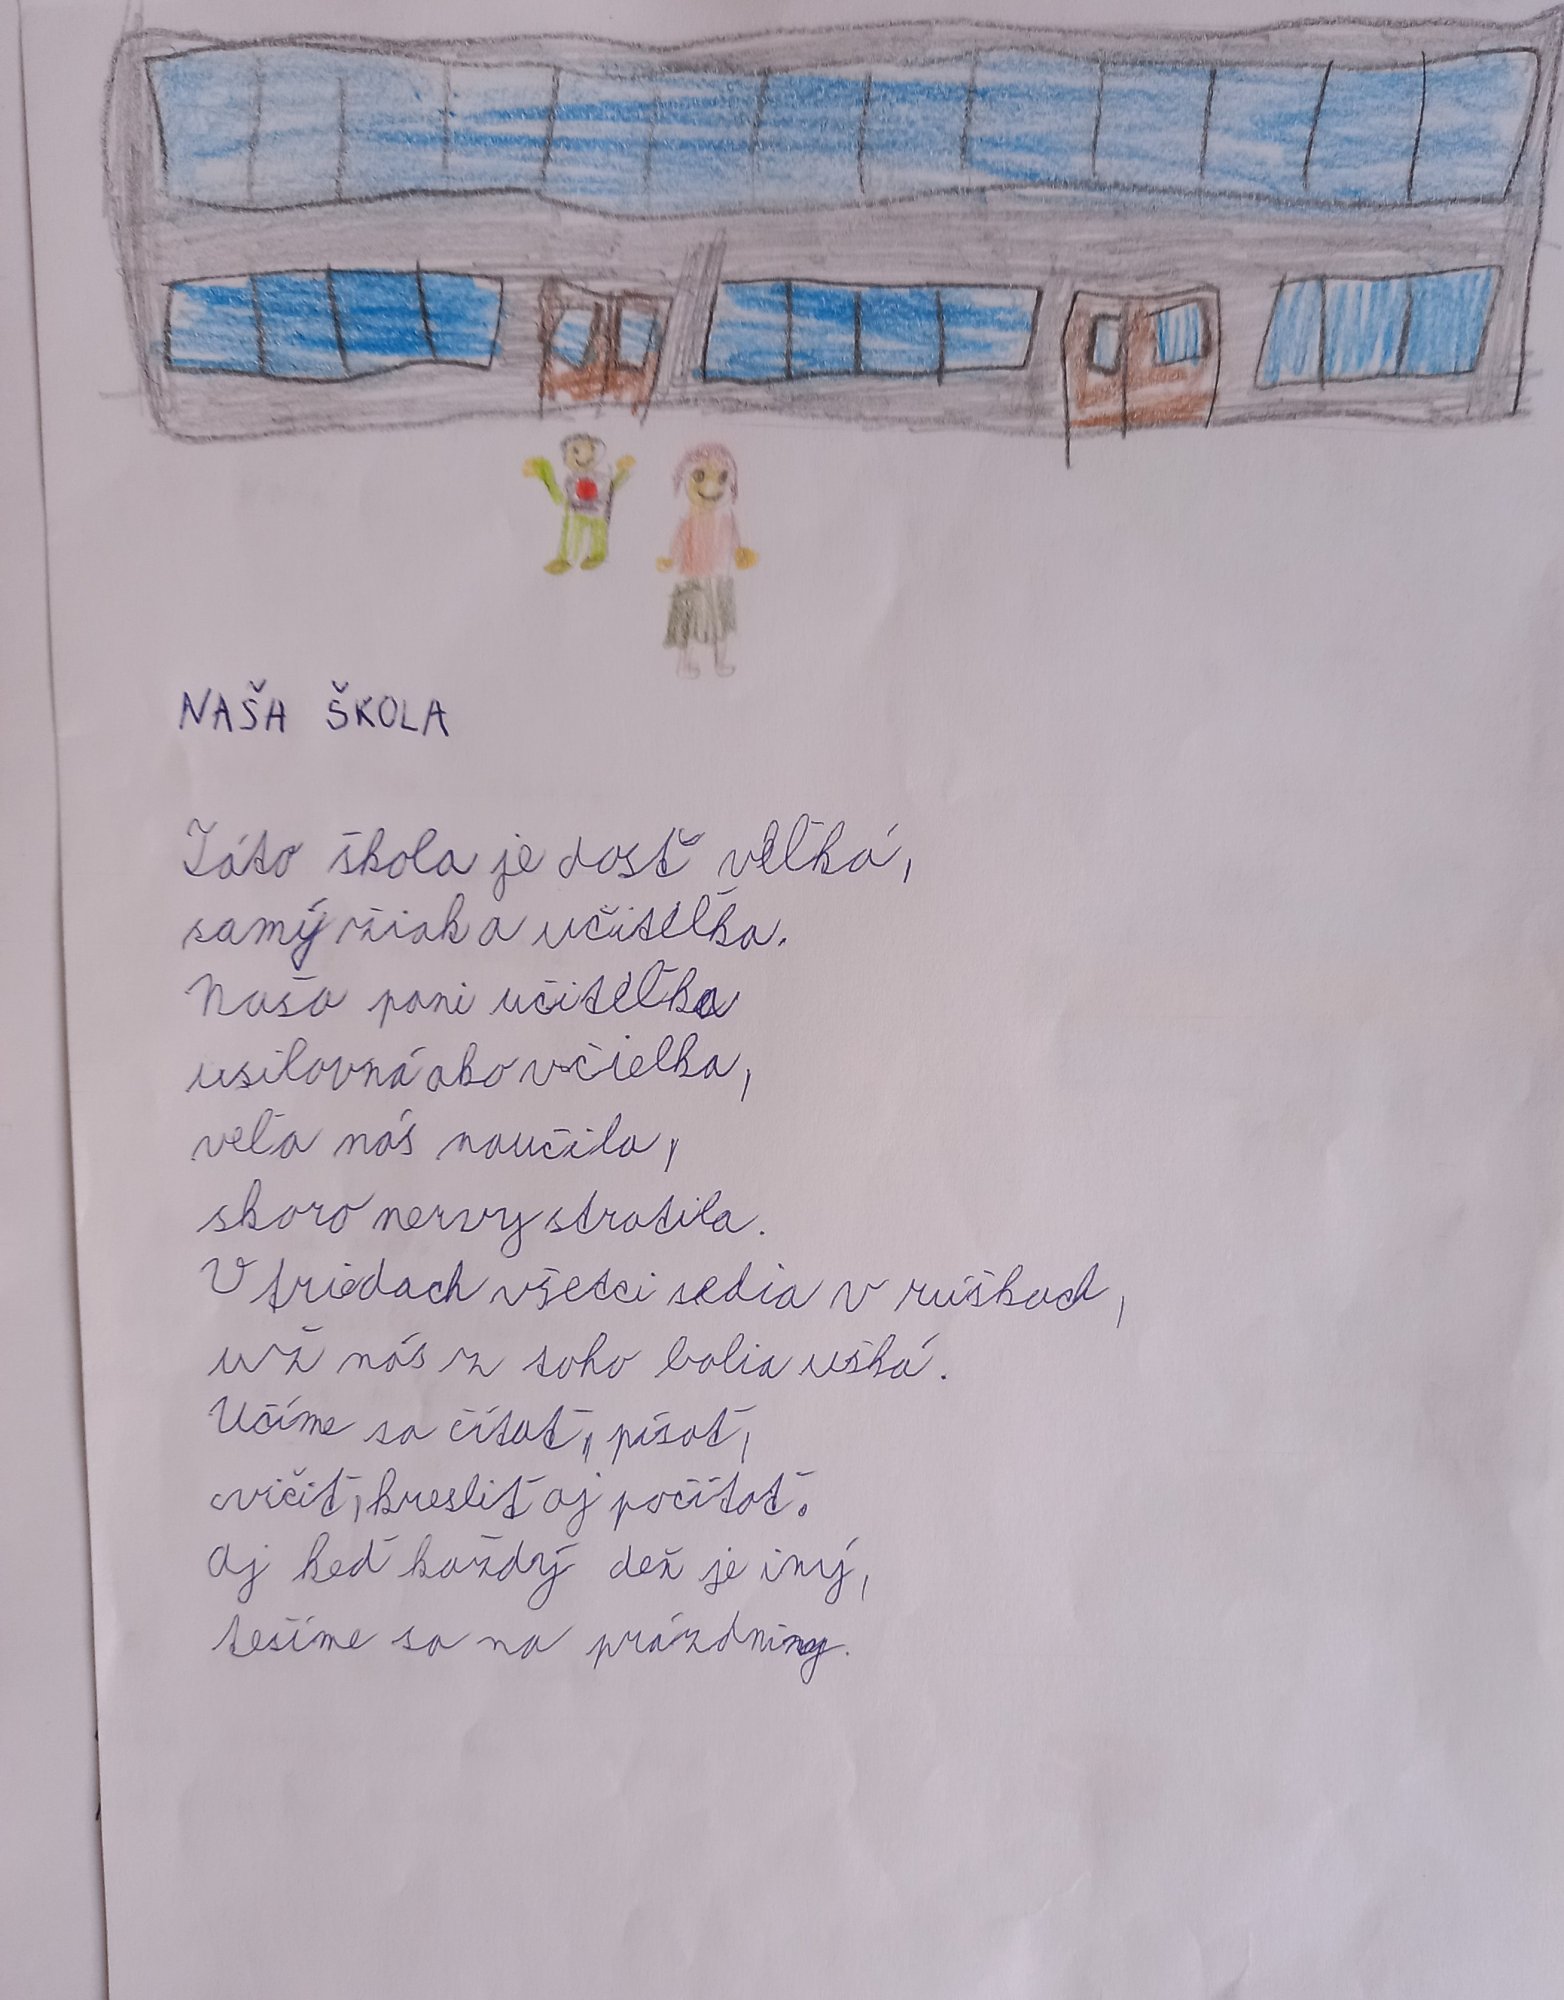 NAŠA ŠKOLA
Táto škola je dosť veľká,
samý žiak a učiteľka.
Naša pani učiteľka
usilovná ako včielka,
veľa nás naučila,
skoro nervy stratila.
V triedach všetci sedia v rúškach,
už nás z toho bolia ušká.
Učíme sa čítať, písať,
cvičiť, kresliť aj počítať.
Aj keď každý deň je iný,
tešíme sa na prázdniny.